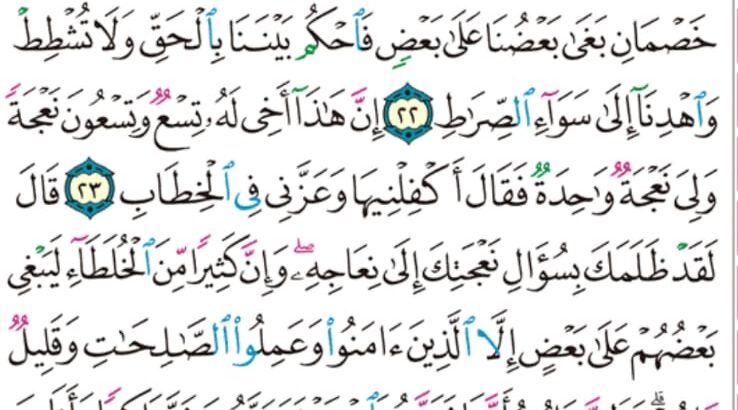 خَصْمَانِ بَغَىٰ بَعْضُنَا عَلَىٰ بَعْضٍ فَٱحْكُم بَيْنَنَا بِٱلْحَقِّ وَلَا تُشْطِطْ
وَٱهْدِنَآ إِلَىٰ سَوَآءِ ٱلصِّرَٰطِ ٢٢ إِنَّ هَٰذَآ أَخِى لَهُۥ تِسْعٌ وَتِسْعُونَ نَعْجَةً
وَلِىَ نَعْجَةٌ وَٰحِدَةٌ فَقَالَ أَكْفِلْنِيهَا وَعَزَّنِى فِى ٱلْخِطَابِ ٢٣ قَالَ
لَقَدْ ظَلَمَكَ بِسُؤَالِ نَعْجَتِكَ إِلَىٰ نِعَاجِهِۦ ۖ وَإِنَّ كَثِيرًا مِّنَ ٱلْخُلَطَآءِ لَيَبْغِى
بَعْضُهُمْ عَلَىٰ بَعْضٍ إِلَّا ٱلَّذِينَ ءَامَنُوا۟ وَعَمِلُوا۟ ٱلصَّٰلِحَٰتِ وَقَلِيلٌ